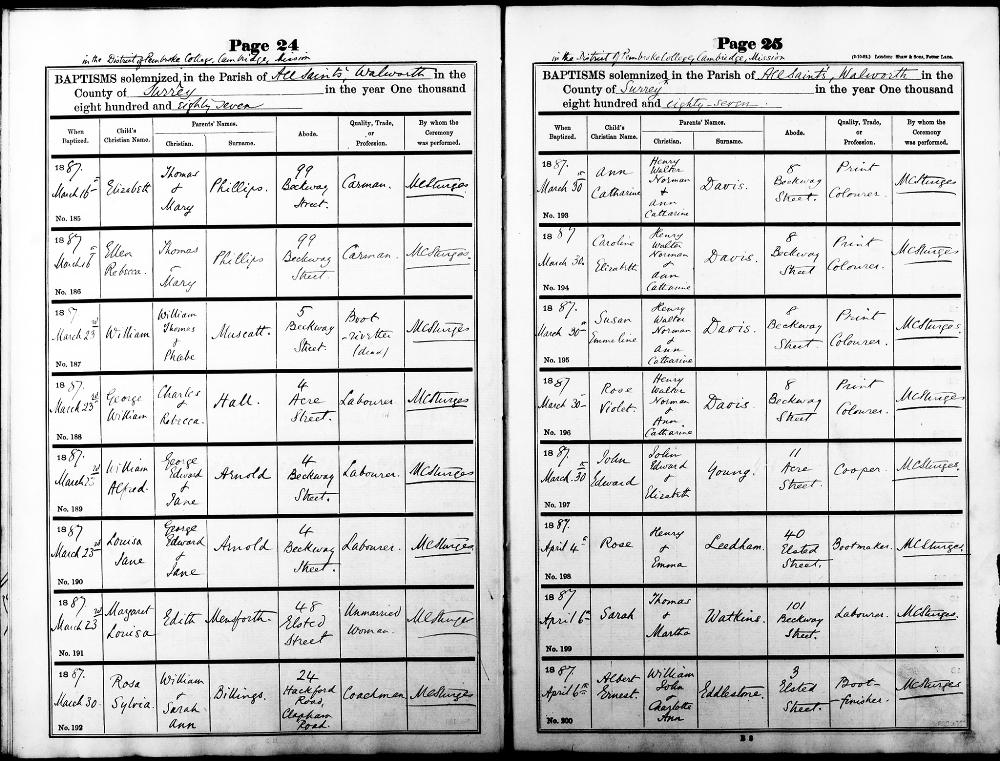 Page 24
in the District of Pembroke College, Cambridge, Mission
BAPTISMS solemnized in the Parish of All Saints', Walworth in the
County of Surrey in the year One thousand
eight hundred and eighty seven
When Baptized. Child's Christian Name. Parents' Names. Christian. Surname. Abode. Quality, Trade, or Profession. By whom the Ceremony was performed.
1887. March 16th No. 185 Elizabeth Thomas & Mary Phillips. 99 Beckway Street. Carman. MCSturges
1887 March 16th No. 186 Ellen Rebecca. Thomas & Mary Phillips 99 Beckway Street Carman. MCSturges
1887 March 23rd No. 187 William William Thomas & Phebe Muscatt. 5 Beckway Street. Boot -rivetter (dead) MCSturges
1887. March 23rd No. 188 George William Charles & Rebecca. Hall. 4 Acre Street. Labourer. MCSturges
1887. March 23rd No. 189 William Alfred. George Edward & Jane Arnold 4 Beckway Street. Labourer. MCSturges
1887 March 23rd No. 190 Louisa Jane George Edward & Jane Arnold 4 Beckway Street. Labourer. MCSturges
1887. March 23rd No. 191 Margaret Louisa Edith Mensforth. 48 Elsted Street Unmarried Woman. MCSturges
1887. March 30. No. 192 Rosa Sylvia. William & Sarah Ann Billings. 24 Hackford Road, Clapham Road. Coachman MCSturges
Page 25
in the District of Pembroke College, Cambridge, Mission
London: Shaw & Sons, Fetter Lane.
BAPTISMS solemnized in the Parish of All Saints', Walworth in the
County of Surrey in the year One thousand
eight hundred and eighty-seven.
When Baptized. Child's Christian Name. Parents' Names. Christian. Surname. Abode. Quality, Trade, or Profession. By whom the Ceremony was performed.
1887. March 30th No. 193 Ann Catharine Henry Walter Norman & Ann Catharine Davis. 8 Beckway Street. Print Colourer. MCSturges
1887 March 30. No. 194 Caroline Elizabeth Henry Walter Norman & Ann Catharine Davis. 8 Beckway Street Print Colourer. MCSturges
1887. March 30th No. 195 Susan Emmeline Henry Walter Norman & Ann Catharine Davis. 8 Beckway Street. Print Colourer. MCSturges
1887 March 30th No. 196 Rose Violet. Henry Walter Norman & Ann Catharine Davis. 8 Beckway Street Print Colourer. MCSturges
1887. March 30th No. 197 John Edward John Edward & Elizabeth Young. 11 Acre Street. Cooper. MCSturges.
1887. April 4th No. 198 Rose Henry & Emma Leedham. 40 Elsted Street. Bootmaker. MCSturges.
1887 April 6th No. 199 Sarah Thomas & Martha Watkins. 101 Beckway Street. Labourer. MCSturges.
1887 April 6th No. 200 Albert Ernest. William John & Charlotte Ann Eddlestone. 3 Elsted Street. Boot- finisher. MCSturges